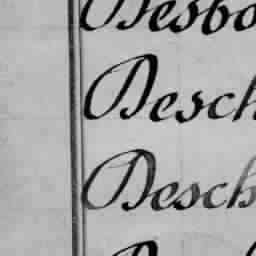 Desbo
Desch
Desch